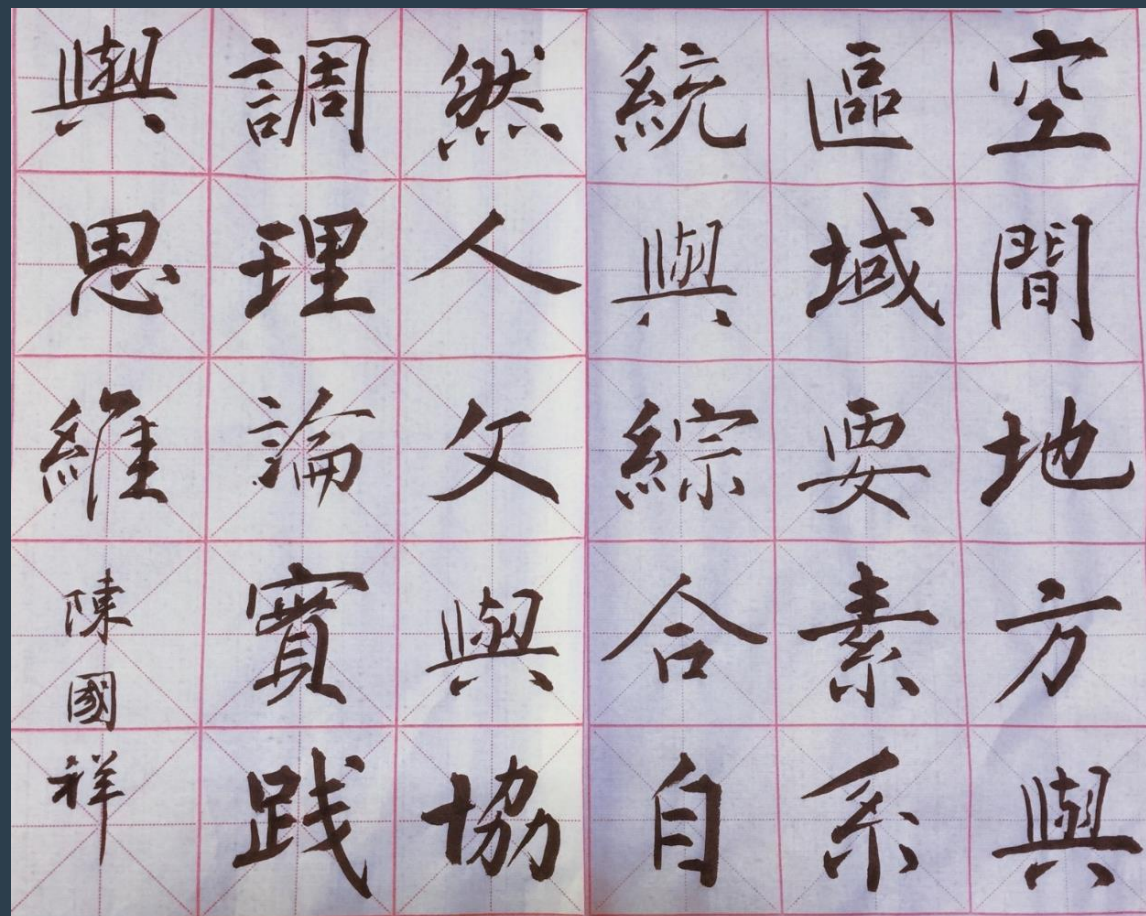 空間地方與
區域要素系
統與綜合自
然人文與協
調理論實践
與思維
陳國祥